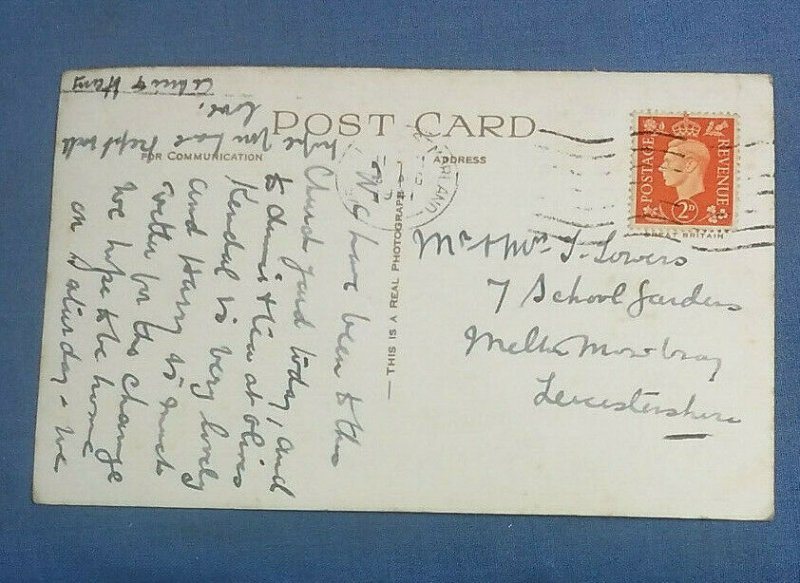 POST CARD
FOR COMMUNICATION
ADDRESS
— THIS IS A REAL PHOTOGRAPH
POSTAGE
REVENUE
2D
GREAT BRITAIN
We have been to this
Church Yard today, and
to dinner & tea at Olives
Kendal is very lovely
and Harry is much
better for the change
We hope to be home
on Saturday – we
hope you have kept well
love.
& Harry
Mr & Mrs J. Lowers
7 School Gardens
Melton Mowbray
Leicestershire